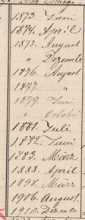 1873. Juni
1874. April
1875. August
" Dezember
1876. August
1877.
1879. Juni
" October
1881. Juli
1882. Juni
1883. März
1888. April
1898. März
1906. August
1910.